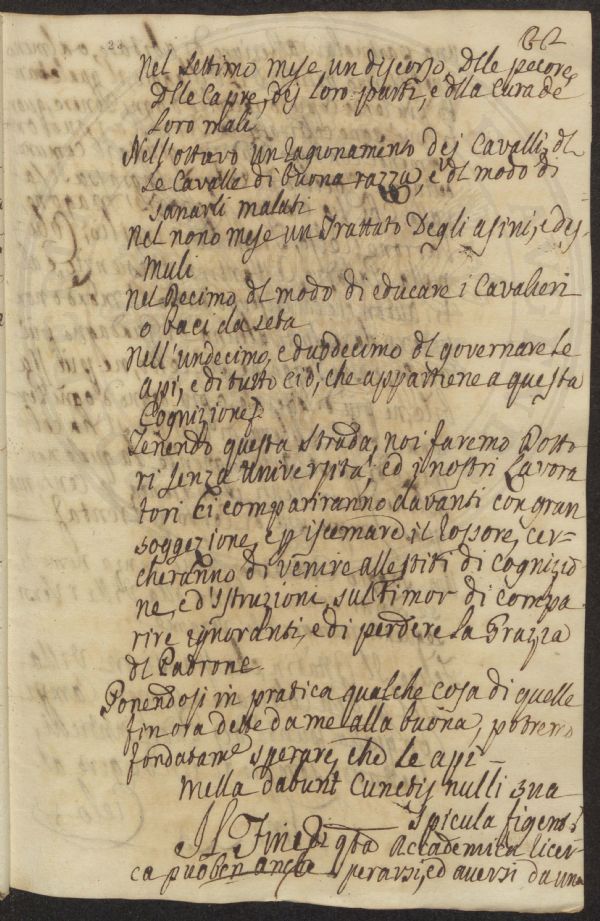 22
Nel settimo mese un discorso dlle pecore
dlle Capre, dej loro parti, e dlla Cura de
loro mali
Nell'ottavo un ragionamento dej Cavalli, dl
le Cavalle di buona razza, e dl modo di
sanarli malati
Nel nono mese un Trattato degli asini, e dej
muli
Nel Decimo dl modo di educare i Cavalieri
o baci da seta
Nell'undecimo, e duodecimo dl governare le
api, e di tutto ciò, che appartiene a questa
Cognizione
Tenendo questa strada, noi faremo Dotto
ri senza Università, ed i nostri Lavora
tori ci compariranno davanti con gran
soggezione, e p iscemare il rossore, cer=
cheranno di venire allestiti di cognizio
ne, ed Istruzioni, sul timor di compa
rire ignoranti, e di perdere la Grazia
dl Padrone
Ponendosi in pratica qualche cosa di quelle
fin ora dette da me alla buona, potremo
fondatame sperare, che le api =
Mella dabunt Cunctis nulli sua
spicula figent
Il Fine di qta Accademica ricer=
ca può ben anche sperarsi, ed aversi da una